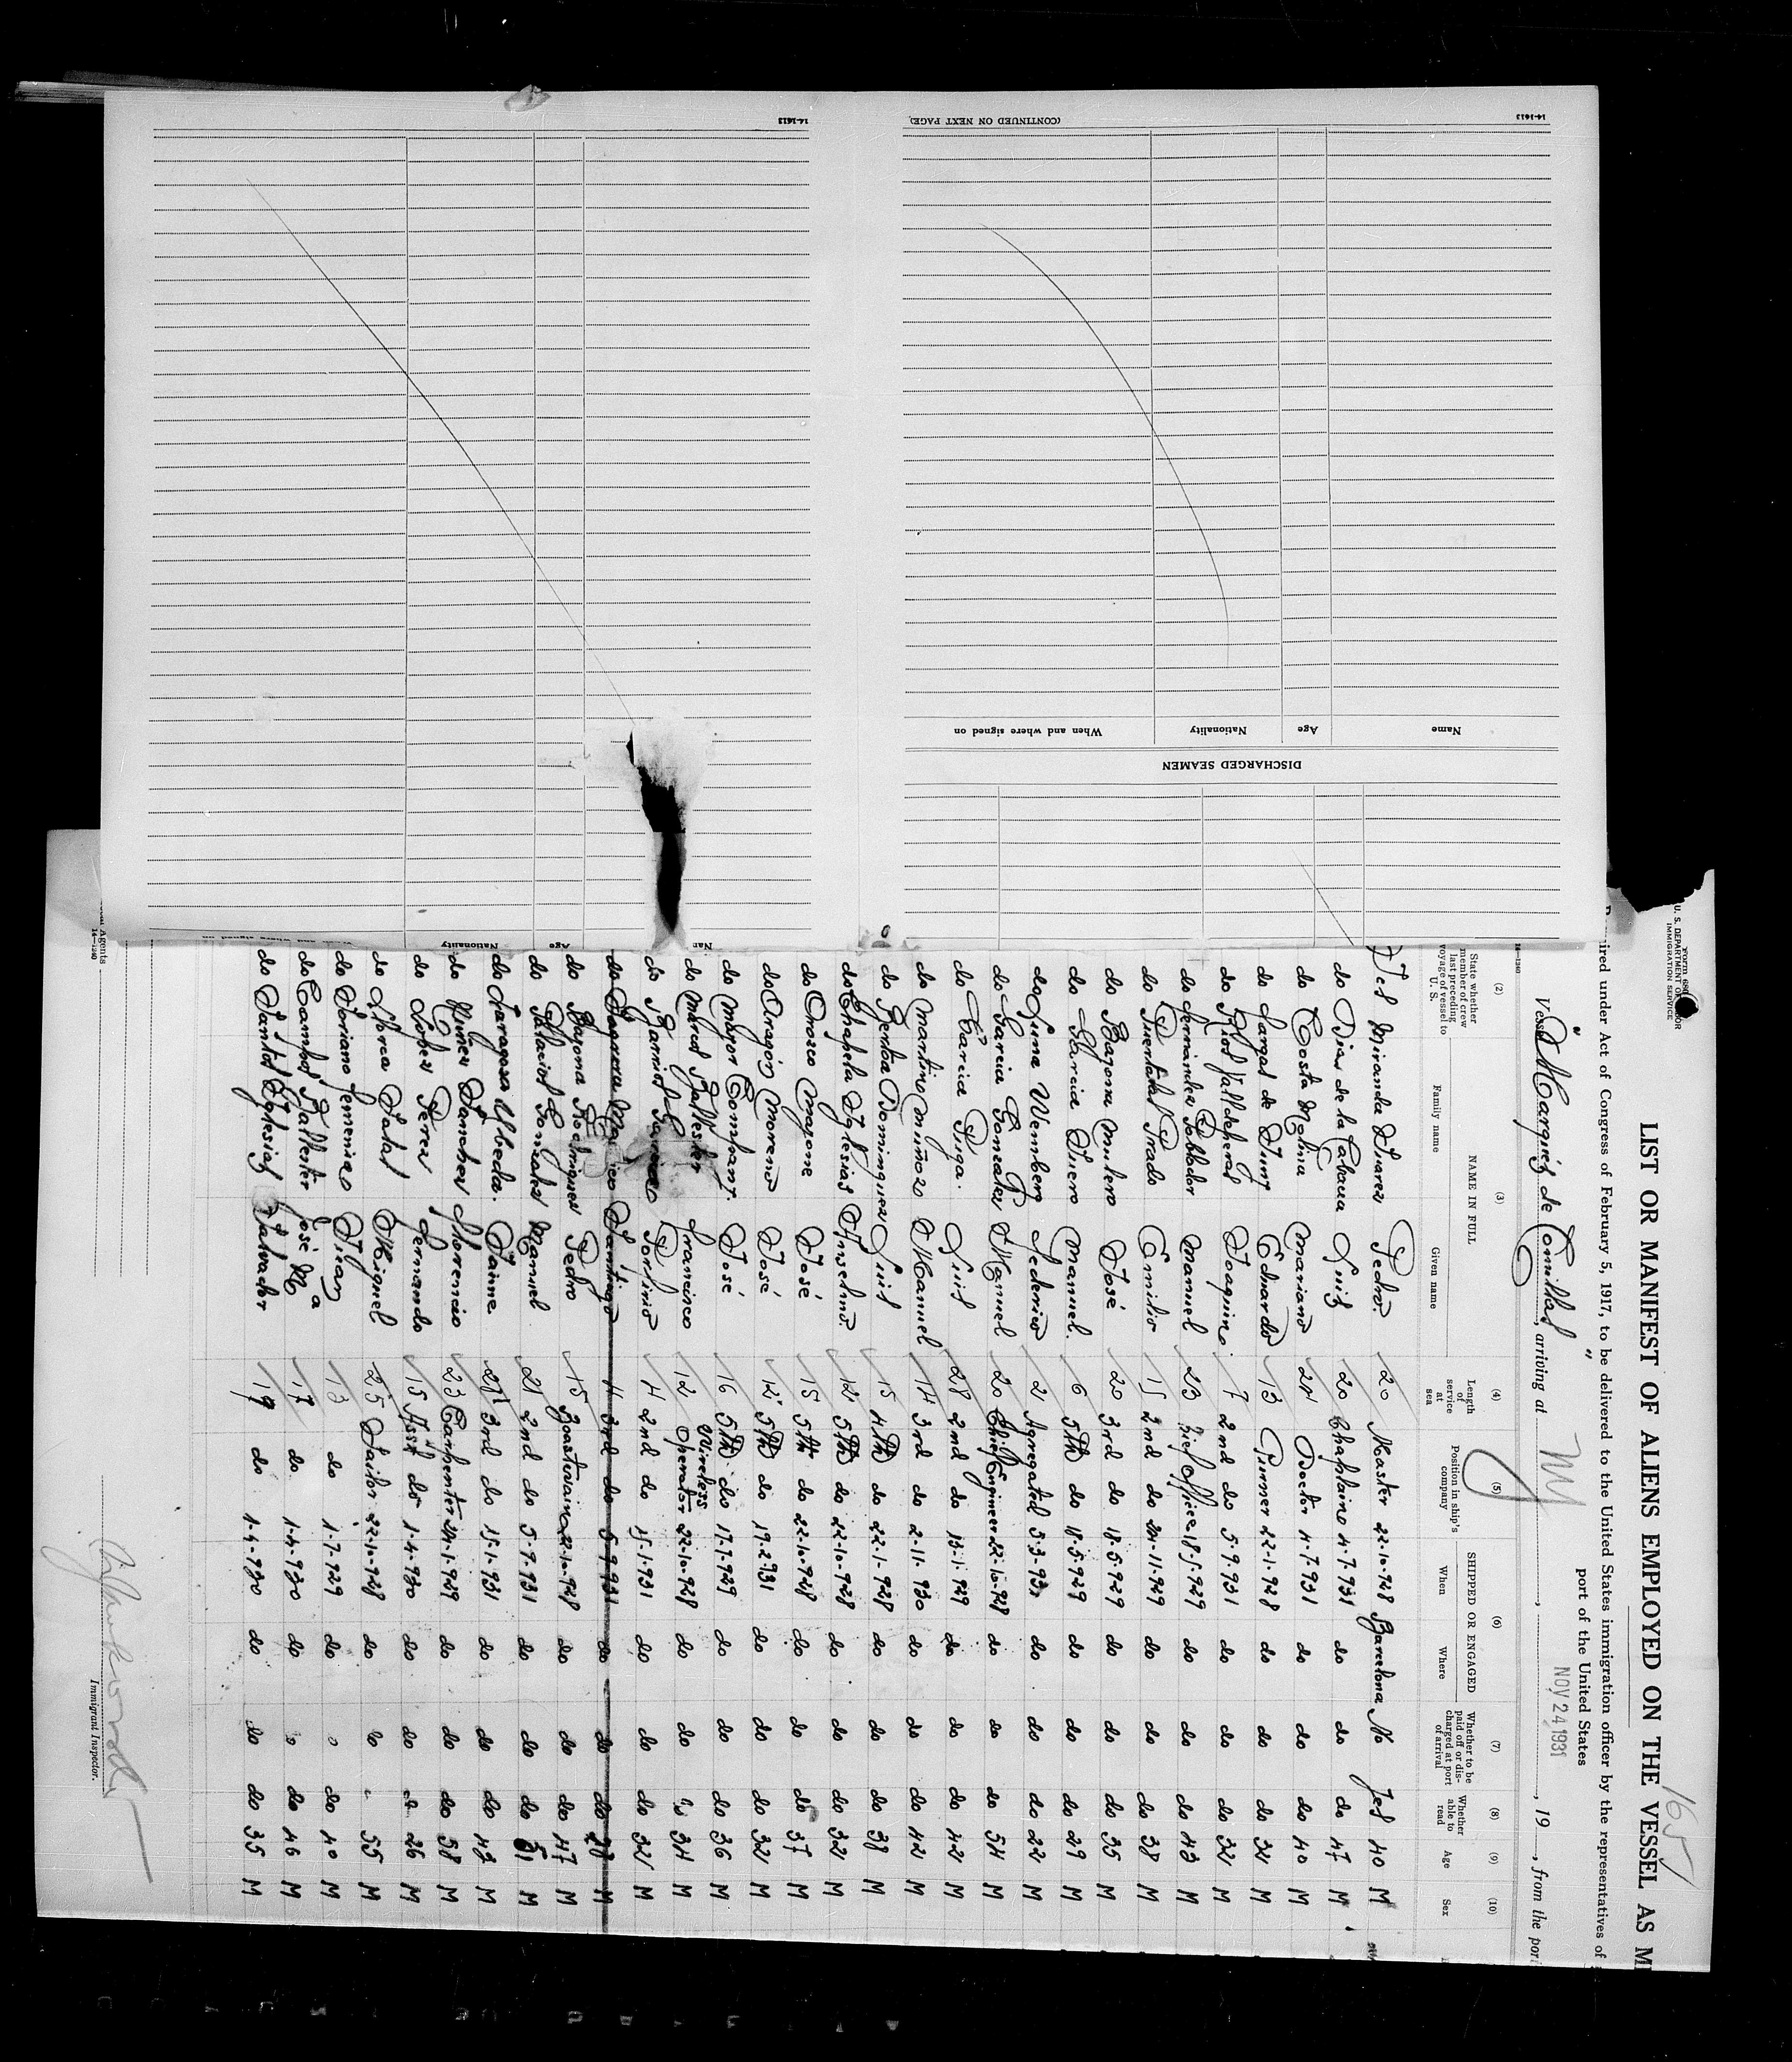 14-1613
(CONTINUED ON NEXT PAGE)
14-1613
Name Age Nationality When and where signed on
DISCHARGED SEAMEN
Age Nationality
U. S. DEPARTMENT OF LABOR
IMMIGRATION SERVICE
165
LIST OR MANIFEST OF ALIENS EMPLOYED ON THE VESSEL AS M
ired under Act of Congress of February 5, 1917, to be delivered to the United States immigration officer by the representatives of
port of the United States
Vessel "Marqués de Comillas", arriving at NY, NOV 24 1931, 19, from the port
14-1240
(2) (3) (4) (5) (6) (7) (8) (9) (10)
State whether member of crew last preceding voyage of vessel to U. S.
NAME IN FULL
Family name Given name
Length of service at sea
Position in ship's company
SHIPPED OR ENGAGED
When Where
Whether to be paid off or discharged at port of arrival
Whether able to read
Age
Sex
Yes Miranda Suarez Pedro 20 Master 22.10.928 Barcelona No Yes 40 M
do Dias de la Luis 20 Chaplain 4.7.931 do do do 47 M
do Costa Molina Mariano 21 Doctor 4.7.931 do do do 40 M
do de Eduardo 13 Purser 22.1.928 do do do 32 M
do Rios Valldeperas Joaquin 7 2nd do 5.9.931 do do do 32 M
do Fernandez Poblador Manuel 23 Chief Officer 18.5.929 do do do 43 M
do Prado Emilio 15 2nd do 21.11.929 do do do 38 M
do Bazona Mulero José 20 3rd do 18.5.929 do do do 35 M
do Garcia Suero Manuel 6 5th do 18.5.929 do do do 29 M
do Luna Wemberg Federico 2 Agregated 5.3.931 do do do 22 M
do Garcia Gonzalez Manuel 20 Chief Engineer 22.10.928 do do do 54 M
do Garcia Puga Luis 28 2nd do 15.1.929 do do do 42 M
do Martino Muñozo Manuel 14 3rd do 2.11.930 do do do 42 M
do Dominguez Luis 15 4th do 22.1.928 do do do 38 M
do Iglesias Anselmo 12 5th do 22.10.928 do do do 32 M
do Orosco Magone José 15 5th do 22.10.928 do do do 37 M
do Aragón Moreno José 12 5th do 19.2.931 do do do 32 M
do Mayor Company José 16 5th do 17.1.929 do do do 36 M
do Marcos Ballester Francisco 12 Wireless Operator 22.10.928 do do 34 M
do Ramios Garcia Porfirio 4 2nd do 15.1.931 do do do 32 M
do Santiago 4 3rd do 5.9.931 do do do 28 M
do Bayona Rodriguez Pedro 15 Boastwain 22.1.928 do do do 47 M
do Palacios Gonzalez Manuel 21 2nd do 5.9.931 do do do 51 M
do Zaragosa Ubeda Jaime 21 3rd do 15.1.931 do do do 42 M
do Nuñez Sanchez Florencio 23 Carpenter 21.1.929 do do do 58 M
do Lopez Perez Fernando 15 Asst do 1.4.930 do do do 26 M
do Llorca Miguel 25 Sailor 22.10.928 do do 55 M
do Soriano Jemenias Juan 13 do 1.7.929 do do 40 M
do Campos Ballester José Mª 17 do 1.4.930 do do 46 M
do Santos Iglesias Salvador 19 do 1.4.930 do do do 35 M
Agents
14-1240
Immigrant Inspector.